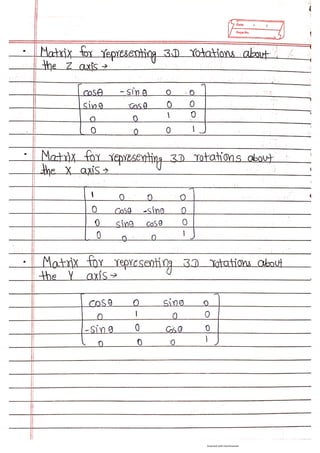 Date
Page No.
• Matrix for representing 3D rotations about
the Z axis →
cosθ -sinθ 0 0
sinθ cosθ 0 0
0 0 1 0
0 0 0 1
• Matrix for representing 3D rotations about
the X axis →
1 0 0 0
0 cosθ -sinθ 0
0 sinθ cosθ 0
0 0 0 1
• Matrix for representing 3D rotations about
the Y axis →
cosθ 0 sinθ 0
0 1 0 0
-sinθ 0 cosθ 0
0 0 0 1
Scanned with CamScanner